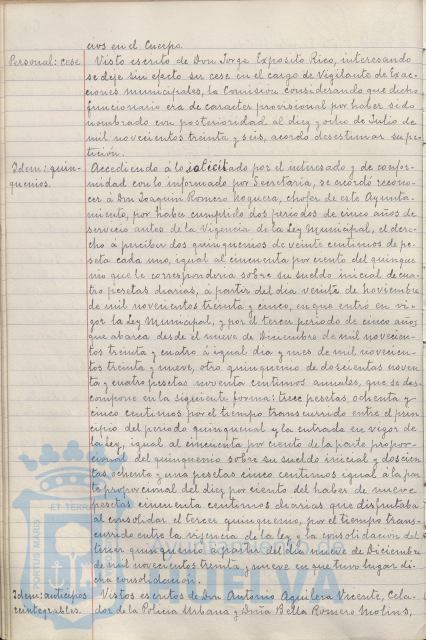 cios en el Cuerpo.
Personal: cese. Visto escrito de Don Jorge Expósito Rico, interesando
se deje sin efecto su cese en el cargo de Vigilante de Exac-
ciones municipales, la Comisión considerando que dicho
funcionario era de caracter provisional por haber sido
nombrado con posterioridad al diez y ocho de Julio de
mil novecientos treinta y seis, acordó desestimar su pe-
tición.
Idem: quin- Accediendo á lo solicitado por el interesado y de confor-
quenios. midad con lo informado por Secretaría, se acordó recono-
cer á Don Joaquín Romero Noguera, chofer de este Ayunta-
miento, por haber cumplido dos periodos de cinco años de
servicio antes de la Vigencia de la Ley Municipal, el dere-
cho á percibir dos quinquenios de veinte centimos de pe-
seta cada uno, igual al cincuenta por ciento del quinque-
nio que le correspondería sobre su sueldo inicial de cua-
tro pesetas diarias, á partir del día veinte de noviembre
de mil novecientos treinta y cinco, en que entró en vi-
gor la Ley Municipal, y por el tercer periodo de cinco años
que abarca desde el nueve de Diciembre de mil novecien-
tos treinta y cuatro á igual dia y mes de mil novecien-
tos treinta y nueve, otro quinquenio de doscientas noven-
ta y cuatro pesetas noventa centimos anuales, que se des-
compone en la siguiente forma: trece pesetas, ochenta y
cinco centimos por el tiempo transcurrido entre el prin-
cipio del periodo quinquenal y la entrada en vigor de
la Ley, igual al cincuenta por ciento de la parte propor-
cional del quinquenio sobre su sueldo inicial y doscien-
tas ochenta y una pesetas cinco centimos igual á la par-
te proporcional del diez por ciento del haber de nueve
pesetas cincuenta centimos diarias que disfrutaba
al consolidar el tercer quinquenio, por el tiempo trans-
currido entre la vigencia de la ley y la consolidación del
tercer quinquenio a partir del día nueve de Diciembre
de mil novecientos treinta y nueve en que tuvo lugar di-
cha consolidación.
Idem: anticipos Vistos escritos de Don Antonio Aguilera Vicente, Cela-
reintegrables. dor de la Policía Urbana y Doña Bella Romero Molins,
ET TERRAE
PORTUS MARIS
HUELVA